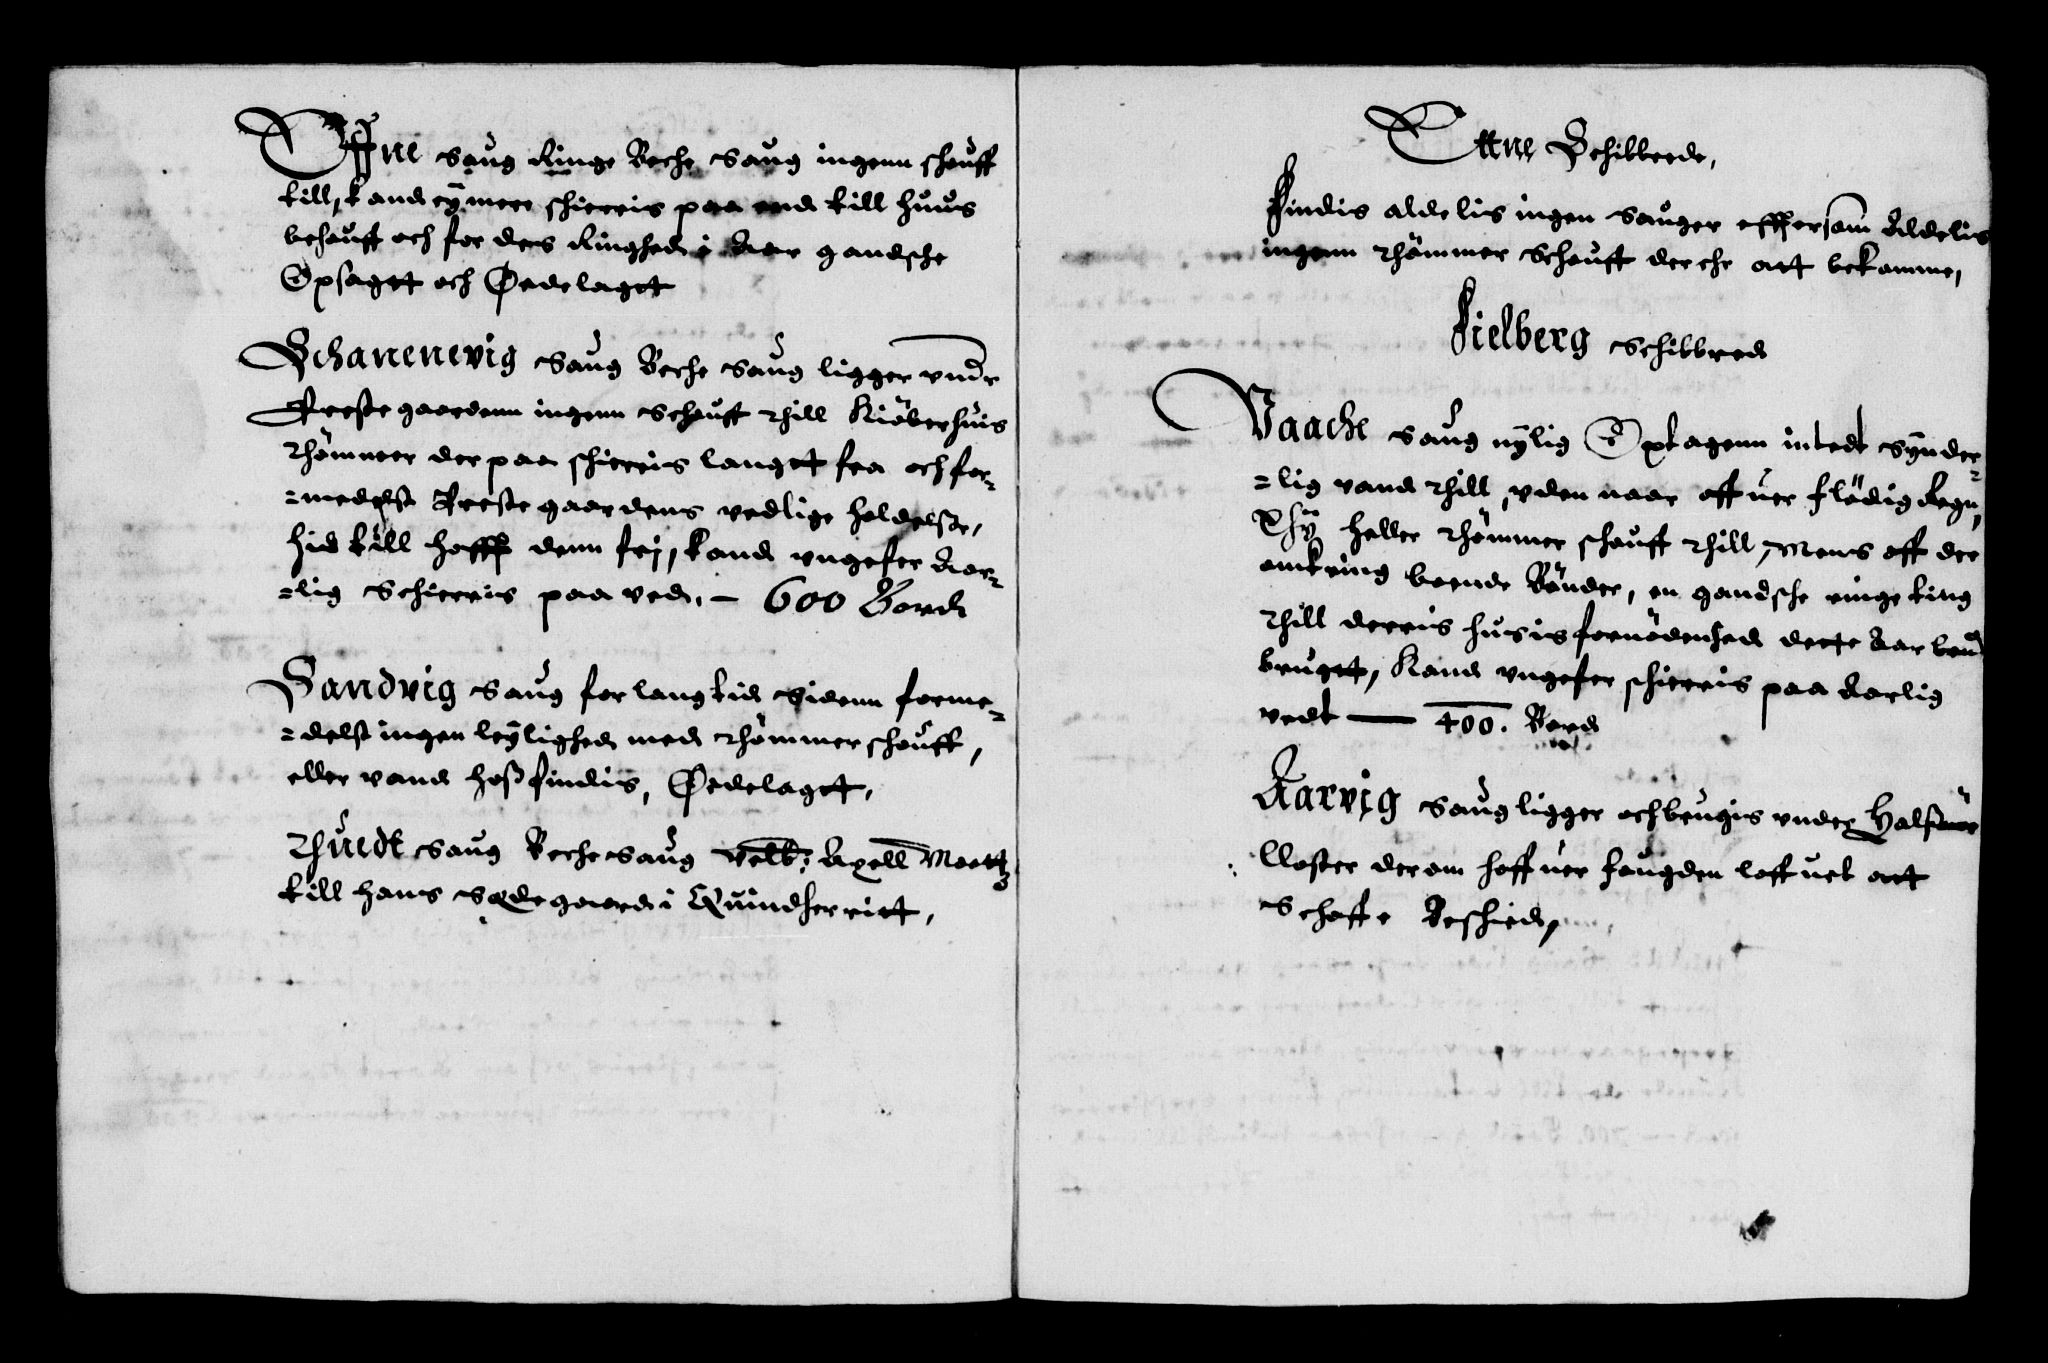 saug Ringe Beche saug ingenn schouff
till, kand ey mere schierris paa end till huus
behouff och for dens Ringhed i Aar gandsche
Opsagtt och Øedelagtt
Schanenevig saug Beche saug ligger vnder
Prestegaardenn ingenn schouff thill Kiöberhuis
thömmer der paa schierris langtt fra och for-
=medelst Preste gaardens vedlige holdelsse,
hid till hafft denn frj, kand vngefer Aar-
=lig schierris paa ved. — 600 Bord
Sandvig saug for lang tid sidenn forme-
=delst ingen leylighed med thömmer schouff,
eller vand hoß findis, Øedelagtt,
saug Beche saug Velb: Axell Maattz
till hans Sædegaard i Quindherritt,
Ettne Schibbrede,
Findis aldelis ingen sauger effthersom Aldelis
ingenn thömmer schouff der er att bekomme,
Fielberg Schibbred
Vaache saug nylig Optagenn intedt synder-
=lig vand thill, vden naar offuer flödig Regn,
Ey heller thömmer schouff thill, Mens aff der
omkring boende Bönder, en gandsche ringe ting
thill derris husis fornödenhed dette Aar
brugtt, Kand vngefer schierris paa Aarlig
vedt — 400. Bord
Aarvig saug ligger och brugis vnder Halsnöe
Closter der om haffuer fougden loffuet att
schaffe Beschied,